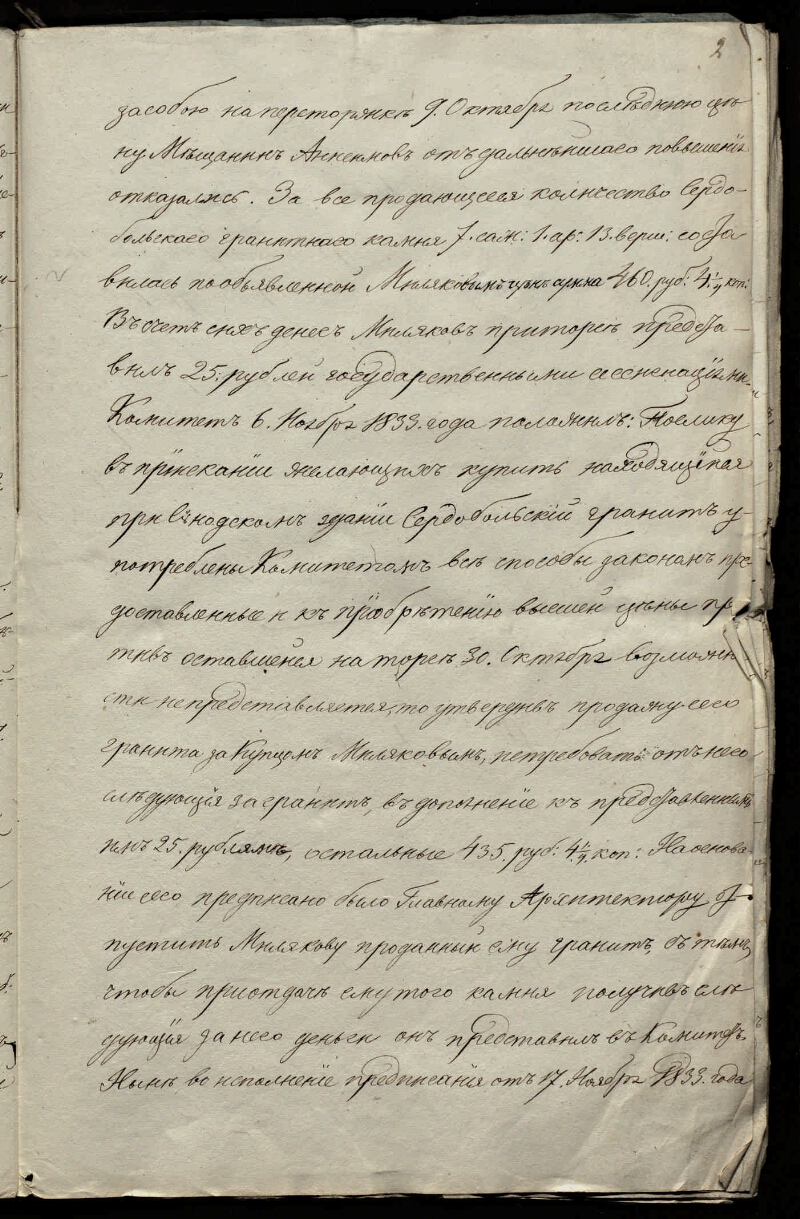 2
за собою на переторжкѣ 9. Октября последнюю цѣ-
ну Мѣщанинъ Аккимовъ отъ дальнѣйшаго повышенія
отказались. За все продающееся количество Сердо-
больскаго гранитнаго камня 7. саж: 1. ар: 13. верш: соста
вилась по объявленной Миляковымъ цѣнѣ сумма 460. руб: 4 1/4 коп:
Въ счетъ сихъ денегъ Миляковъ при торгѣ предста-
вилъ 25. рублей государственными ассигнаціями.
Комитетъ 6. Ноября 1833. года положилъ: Поелику
въ пріисканіи желающихъ купить находящійся
при Сѵнодскомъ зданіи Сердобольскій гранитъ у-
потреблены Комитетомъ всѣ способы закономъ пре
доставленные и къ пріобрѣтенію высшей цѣны пр
тивъ оставшейся на торгѣ 30. Октября возможно
сти не представляется, то утвердивъ продажу сего
гранита за Купцомъ Миляковымъ, потребовать отъ него
слѣдующія за гранитъ, въ дополненіе къ представленнымъ
имъ 25. рублямъ, остальные 435. руб: 4 1/4 коп: На основа-
ніи сего предписано было Главному Архитектору от-
пустить Милякову проданный ему гранитъ, съ тѣмъ,
чтобы при отдачѣ ему того камня получивъ слѣ
дующія за него деньги онъ представилъ въ Комитетъ.
Нынѣ во исполненіе предписанія отъ 17. Ноября 1833. года